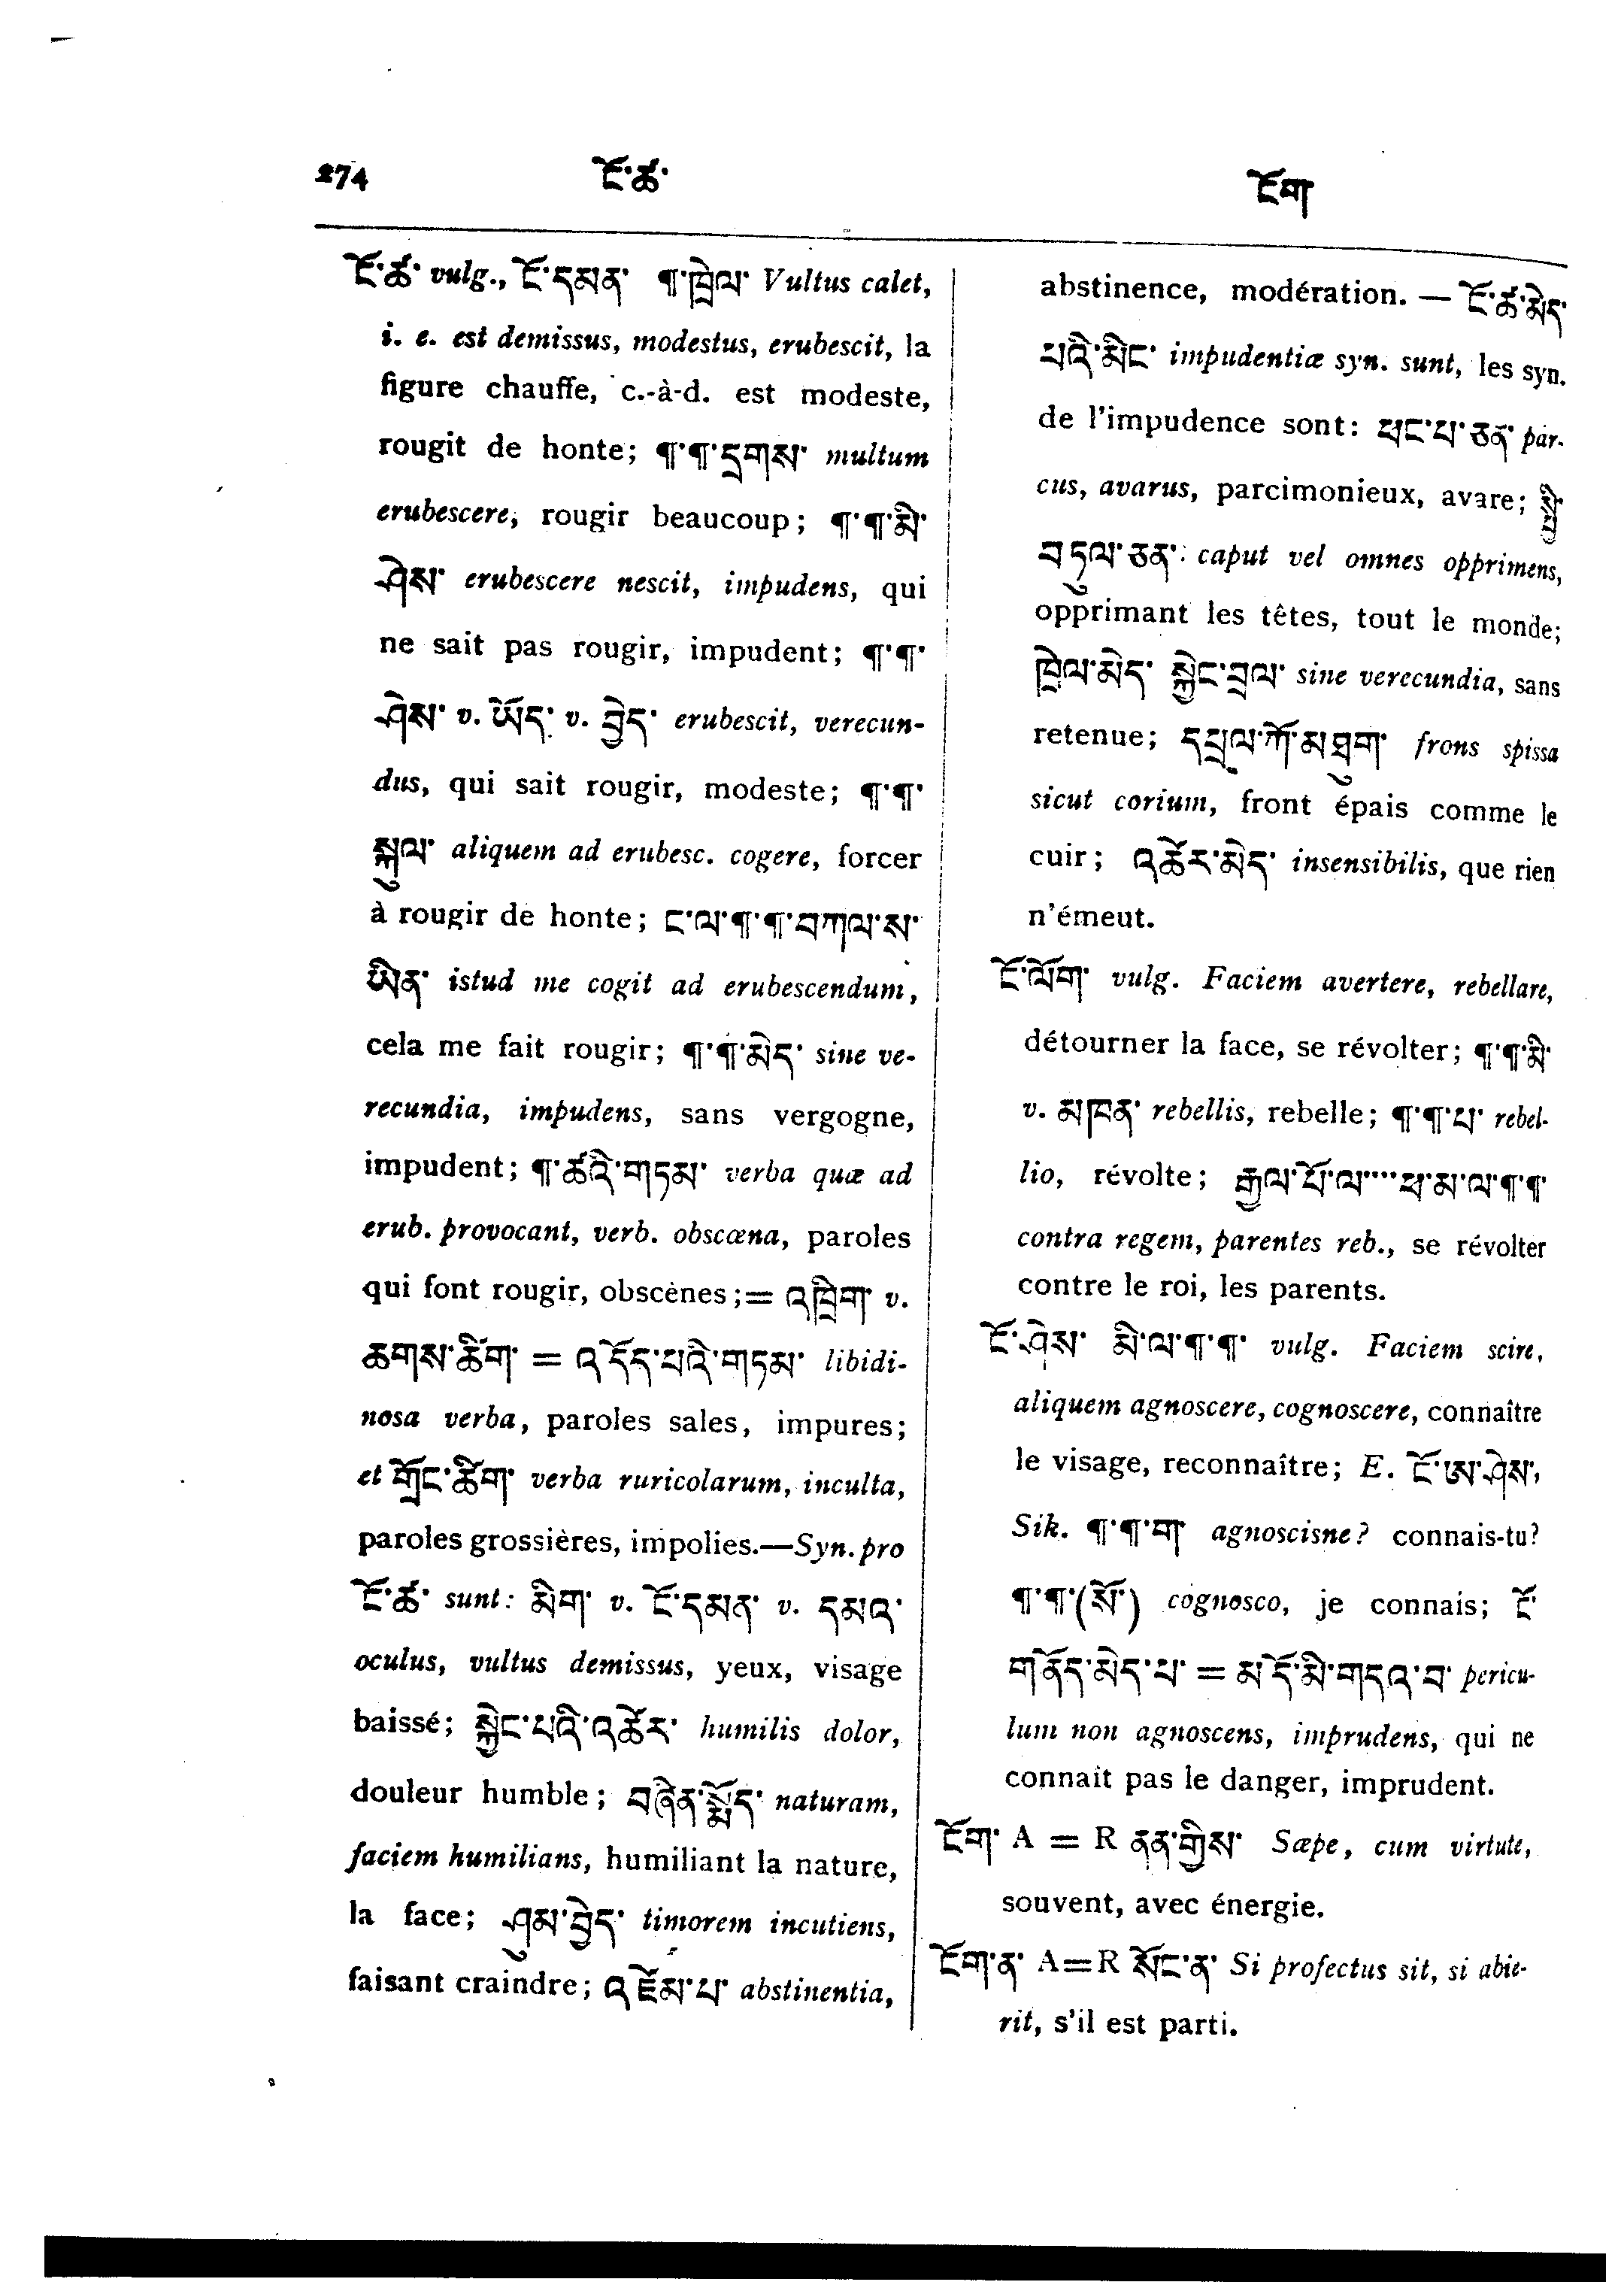 274
ངོ་ཚ་
ངོག
ངོ་ཚ་ vulg., ངོ་དམན་ ¶་ཁྲེལ་ Vultus calet,
i. e. est demissus, modestus, erubescit, la
figure chauffe, c.-à-d. est modeste,
rougit de honte; ¶་¶་དྲགས་ multum
erubescere, rougir beaucoup; ¶་¶་མི་
ཤེས་ erubescere nescit, impudens, qui
ne sait pas rougir, impudent; ¶་¶་
ཤེས་ v. ཡོད་ v. བྱེད་ erubescit, verecun-
dus, qui sait rougir, modeste; ¶་¶་
སྐུལ་ aliquem ad erubesc. cogere, forcer
à rougir de honte; ང་ལ་¶་¶་བཀལ་ས་
ཡིན་ istud me cogit ad erubescendum,
cela me fait rougir; ¶་¶་མེད་ sine ve-
recundia, impudens, sans vergogne,
impudent; ¶་ཚའི་གཏམ་ verba quæ ad
erub. provocant, verb. obscæna, paroles
qui font rougir, obscènes;= འཁྲིག་ v.
ཆགས་ཚིག་ = འདོད་པའི་གཏམ་ libidi-
nosa verba, paroles sales, impures;
et གྲོང་ཚིག་ verba ruricolarum, inculta,
paroles grossières, impolies.—Syn. pro
ངོ་ཚ་ sunt: མིག་ v. ངོ་དམན་ v. དམའ་
oculus, vultus demissus, yeux, visage
baissé; སྐྱེང་པའི་འཚོར་ humilis dolor,
douleur humble; བཞིན་སྨོད་ naturam,
faciem humilians, humiliant la nature,
la face; ཤུམ་བྱེད་ timorem incutiens,
faisant craindre; འཛོམ་པ་ abstinentia,
abstinence, modération. — ངོ་ཚ་མེད་
པའི་མིང་ impudentiæ syn. sunt, les syn.
de l'impudence sont: ཕང་པ་ཅན་ par-
cus, avarus, parcimonieux, avare; སྤྱི་
བདུལ་ཅན་ caput vel omnes opprimens,
opprimant les têtes, tout le monde;
ཁྲེལ་མེད་ སྐྱེང་བྲལ་ sine verecundia, sans
retenue; དཔྲལ་ཀོ་མཐུག་ frons spissa
sicut corium, front épais comme le
cuir; འཚོར་མེད་ insensibilis, que rien
n'émeut.
ངོ་ལོག་ vulg. Faciem avertere, rebellare,
détourner la face, se révolter; ¶་¶་མི་
v. མཁན་ rebellis, rebelle; ¶་¶་པ་ rebel-
lio, révolte; རྒྱལ་པོ་ལ་····ཕ་མ་ལ་¶་¶་
contra regem, parentes reb., se révolter
contre le roi, les parents.
ངོ་ཤེས་ མི་ལ་¶་¶་ vulg. Faciem scire,
aliquem agnoscere, cognoscere, connaître
le visage, reconnaître; E. ངོ་ཨ་ཤེས་,
Sik. ¶་¶་ག་ agnoscisne? connais-tu?
¶་¶་(སོ་) cognosco, je connais; ངོ་
གནོད་མེད་པ་ = མདོ་མི་གདའ་བ་ pericu-
lum non agnoscens, imprudens, qui ne
connait pas le danger, imprudent.
ངོག་ A = R ནན་གྱིས་ Sæpe, cum virtute,
souvent, avec énergie.
ངོག་ན་ A=R སོང་ན་ Si profectus sit, si abie-
rit, s'il est parti.